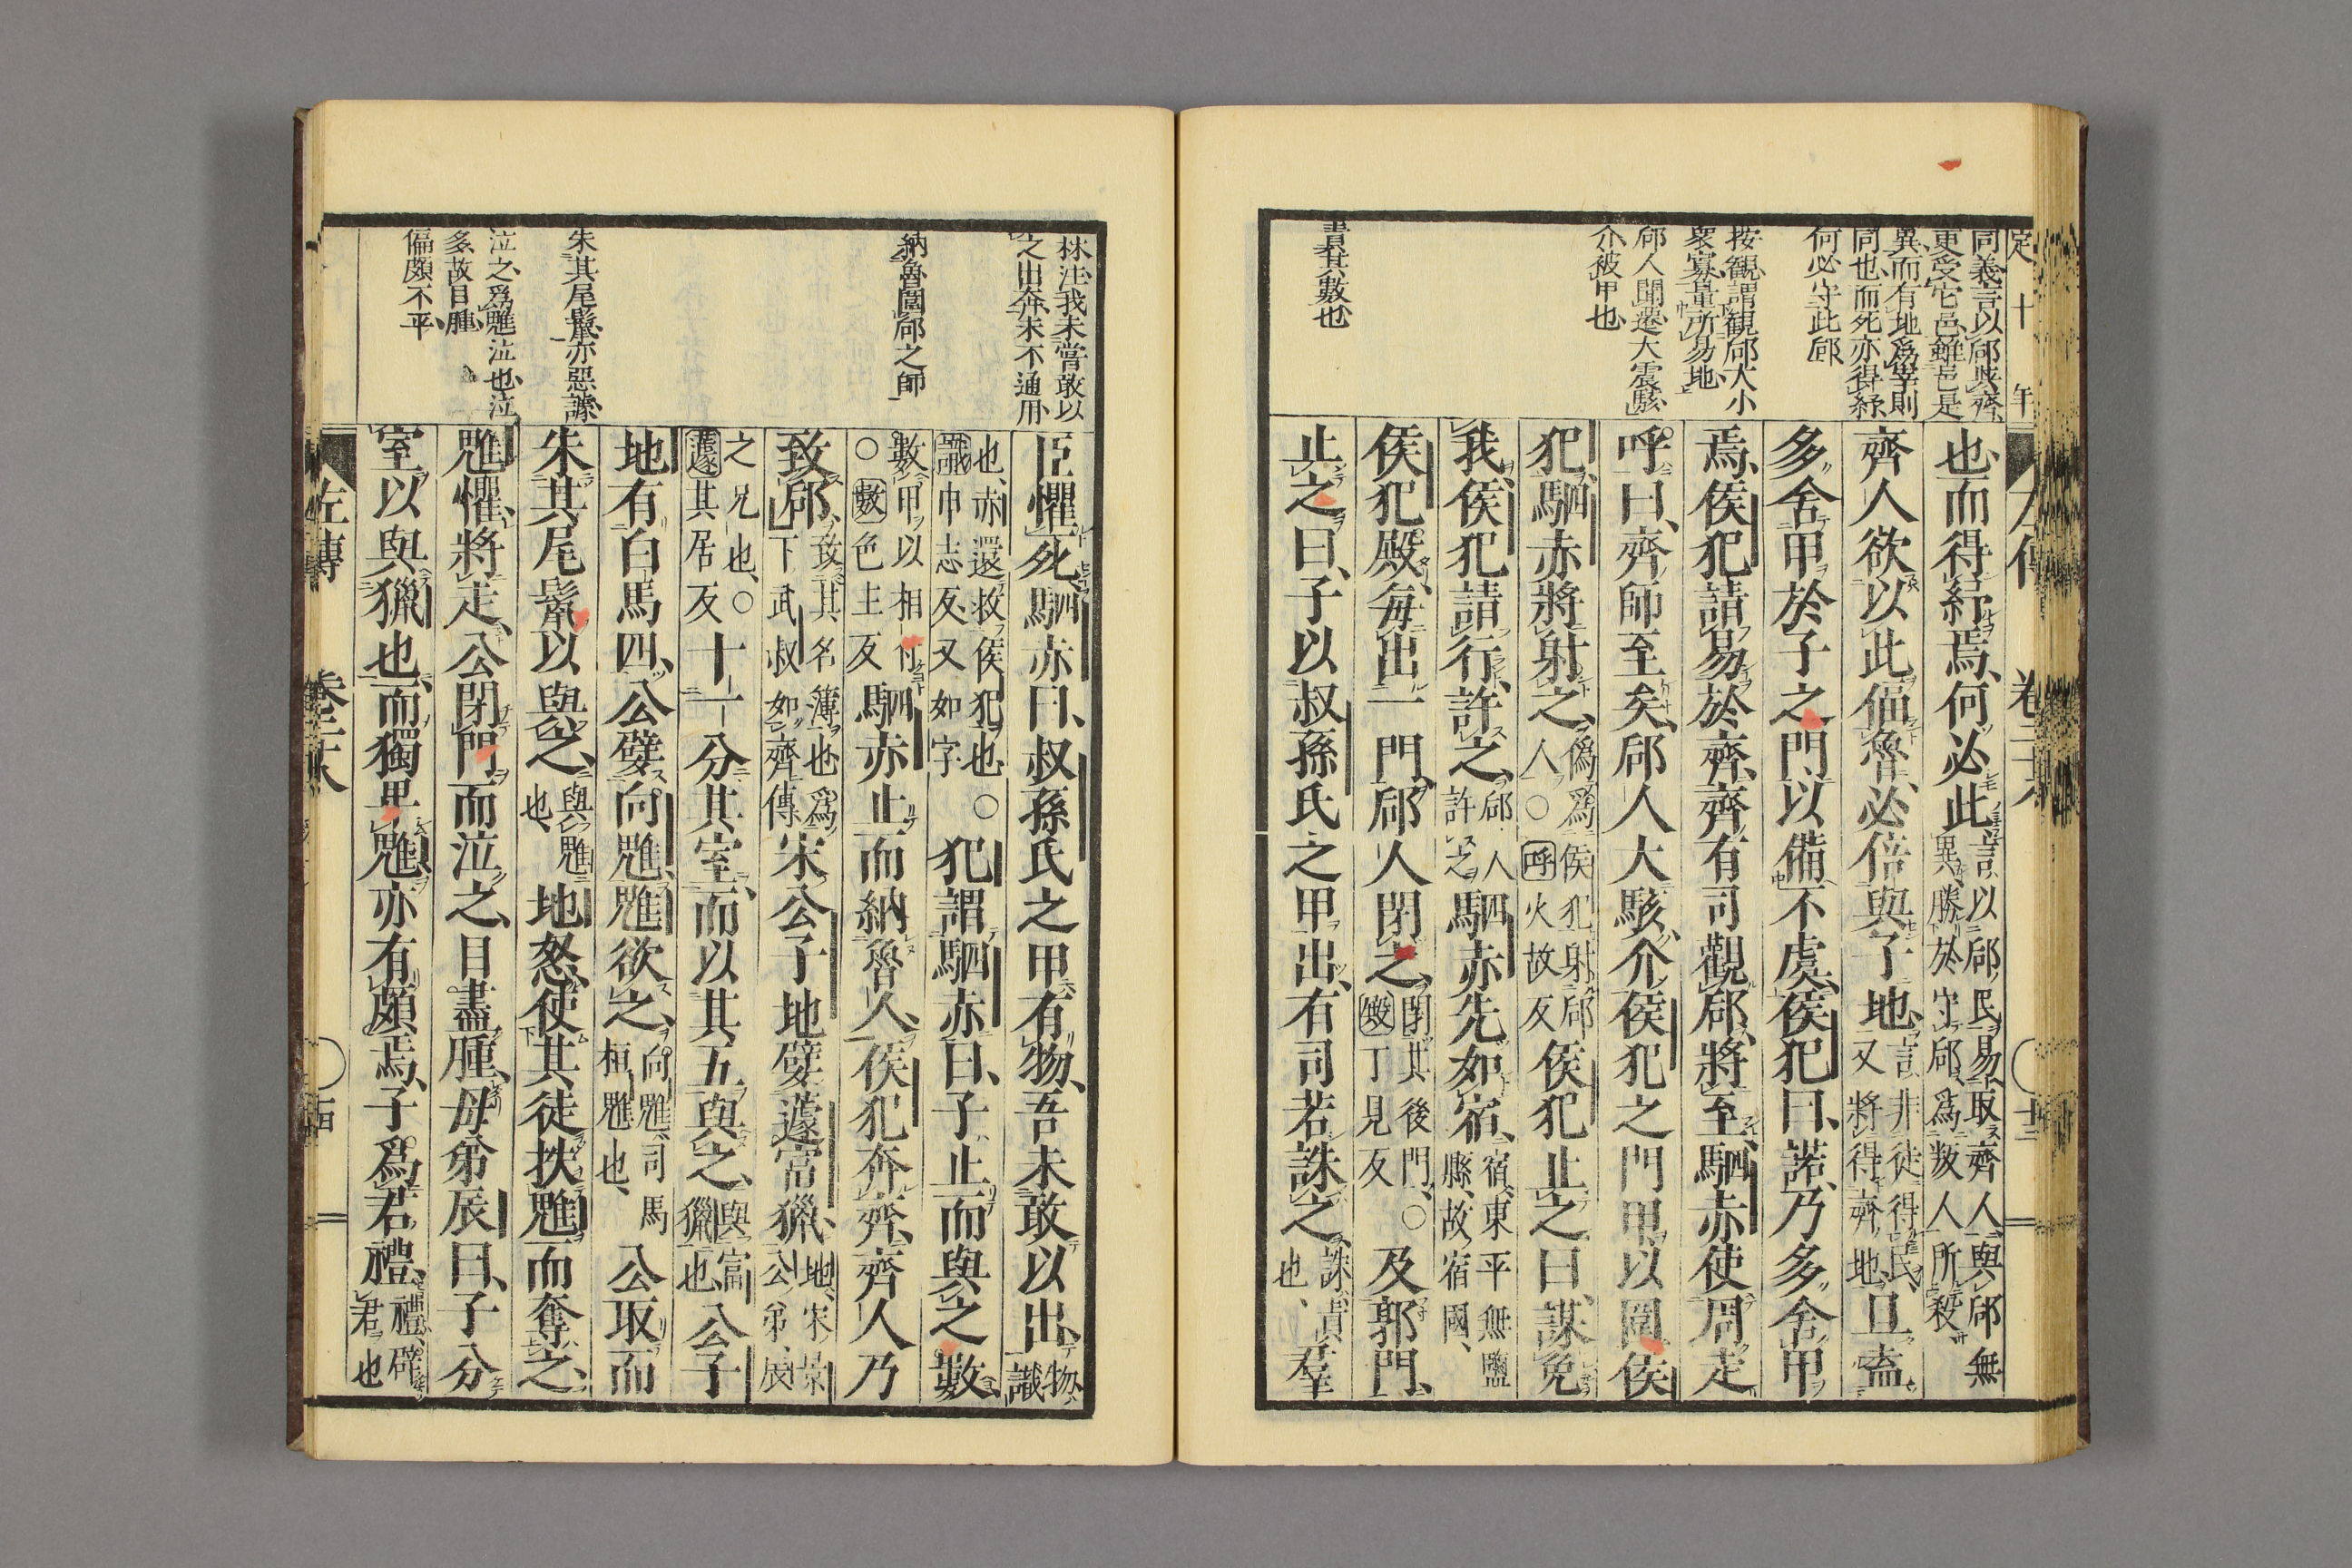 定十年
同義言以郈與齊
更受它邑雖邑是
異而有地爲宰則
同也而死亦得紓
何必守此郈
按觀謂觀郈大小
衆寡量所易地
郈人聞遷大震駭
介被甲也
書其數也
也而得紓焉何必此言以郈民易取齊人與郈無異勝於守郈爲叛人所殺
齊人欲以此偪魯必倍與子地言非徒得民又將得齊地且盍
多舍甲於子之門以備不虞侯犯曰諾乃多舍甲
焉侯犯請易於齊齊有司觀郈將至駟赤使周走
呼曰齊師至矣郈人大駭介侯犯之門甲以圍侯
犯駟赤將射之僞爲侯犯射郈人○呼火故反侯犯止之曰謀免
我侯犯請行許之郈人許之駟赤先如宿宿東平無鹽縣故宿國
侯犯殿每出一門郈人閉之閉其後門○殿丁見反及郭門
止之曰子以叔孫氏之甲出有司若誅之誅責也羣
林注我未嘗敢以
之出奔未不通用
納魯圍郈之師
朱其尾鬛亦惡謔
泣之爲魋泣也泣
多故目腫
偏頗不平
臣懼死駟赤曰叔孫氏之甲有物吾未敢以出物識
也赤還救侯犯也○識巾志反又如字犯謂駟赤曰子止而與之數
數甲以相付○數色主反駟赤止而納魯人侯犯奔齊齊人乃
致郈致其名簿也爲下武叔如齊傳宋公子地嬖蘧富獵地宋景公弟辰
之兄也○蘧其居反十一分其室而以其五與之與富獵也公子
地有白馬四公嬖向魋魋欲之向魋司馬桓魋也公取而
朱其尾鬛以與之與魋也地怒使其徒抶魋而奪之
魋懼將走公閉門而泣之目盡腫母弟辰曰子分
室以與獵也而獨卑魋亦有頗焉子爲君禮禮辟君也
左傳 卷二十八